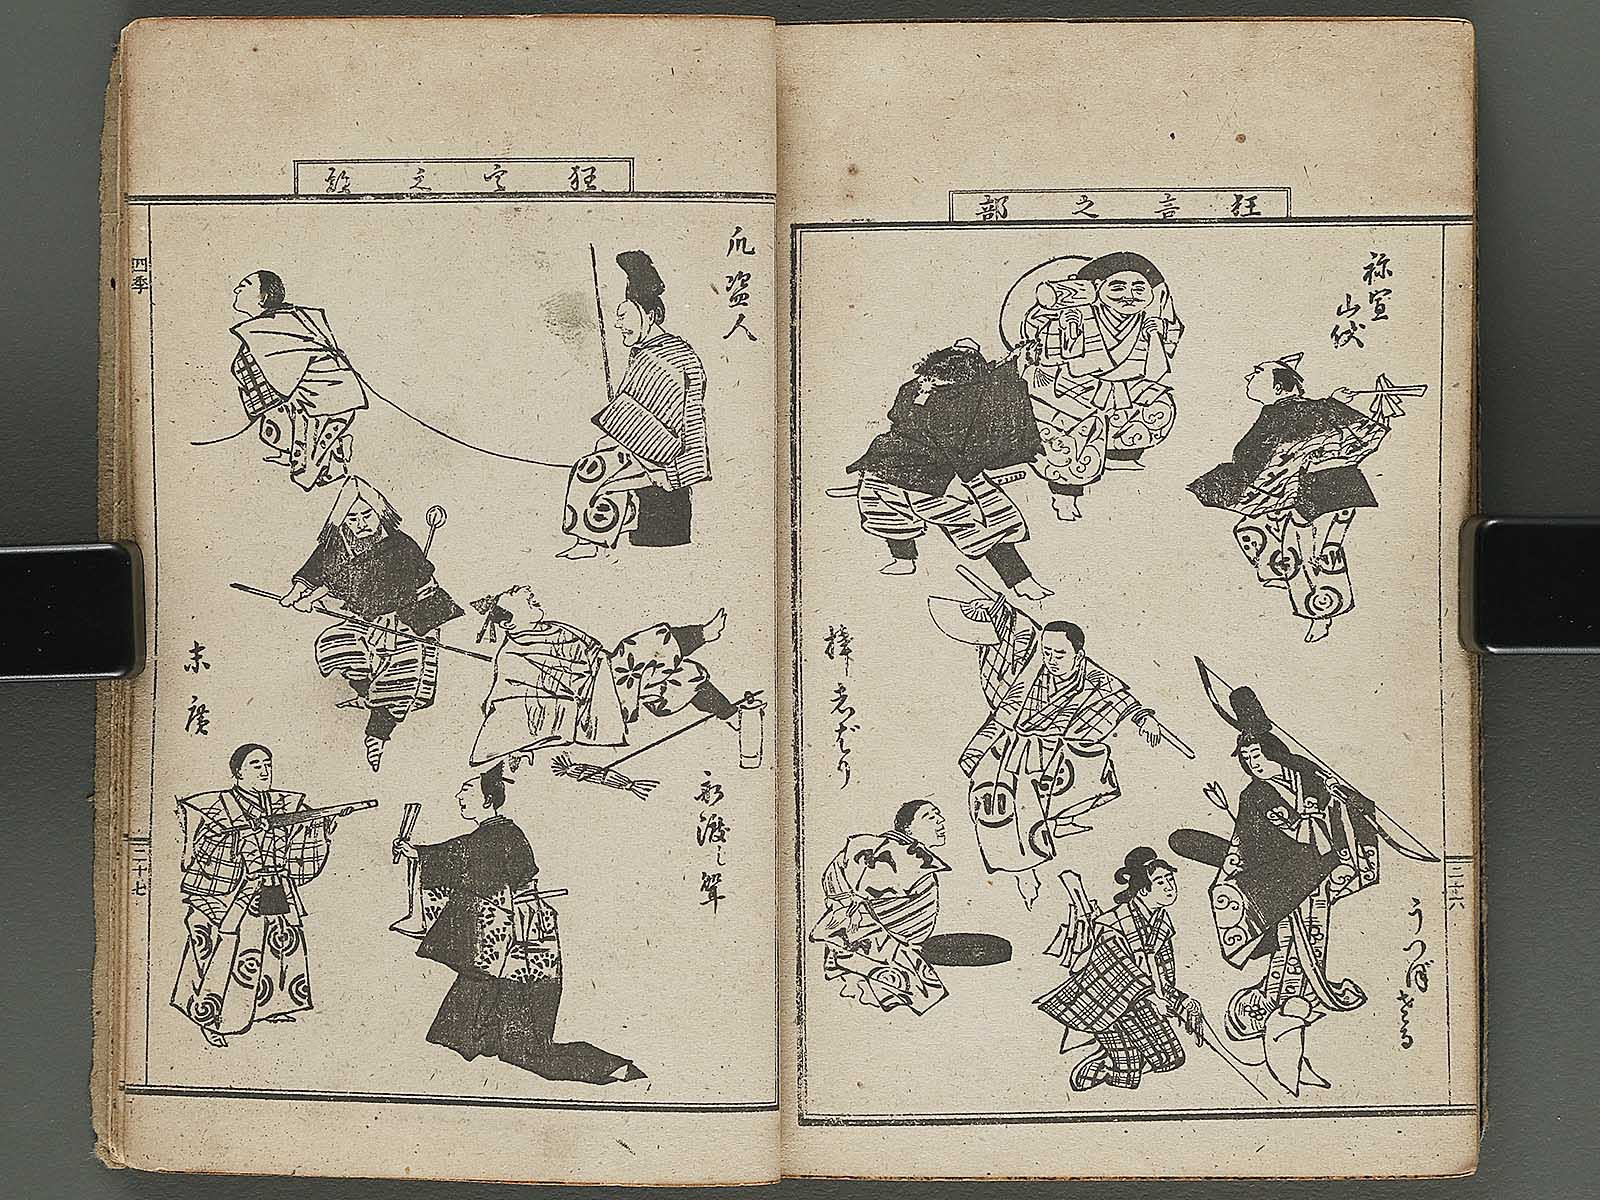 狂言之部
祢宣
山伏
棒志ばり
うつぼざる
二十六
狂言之部
瓜盗人
船渡し聟
末廣
四季
二十七